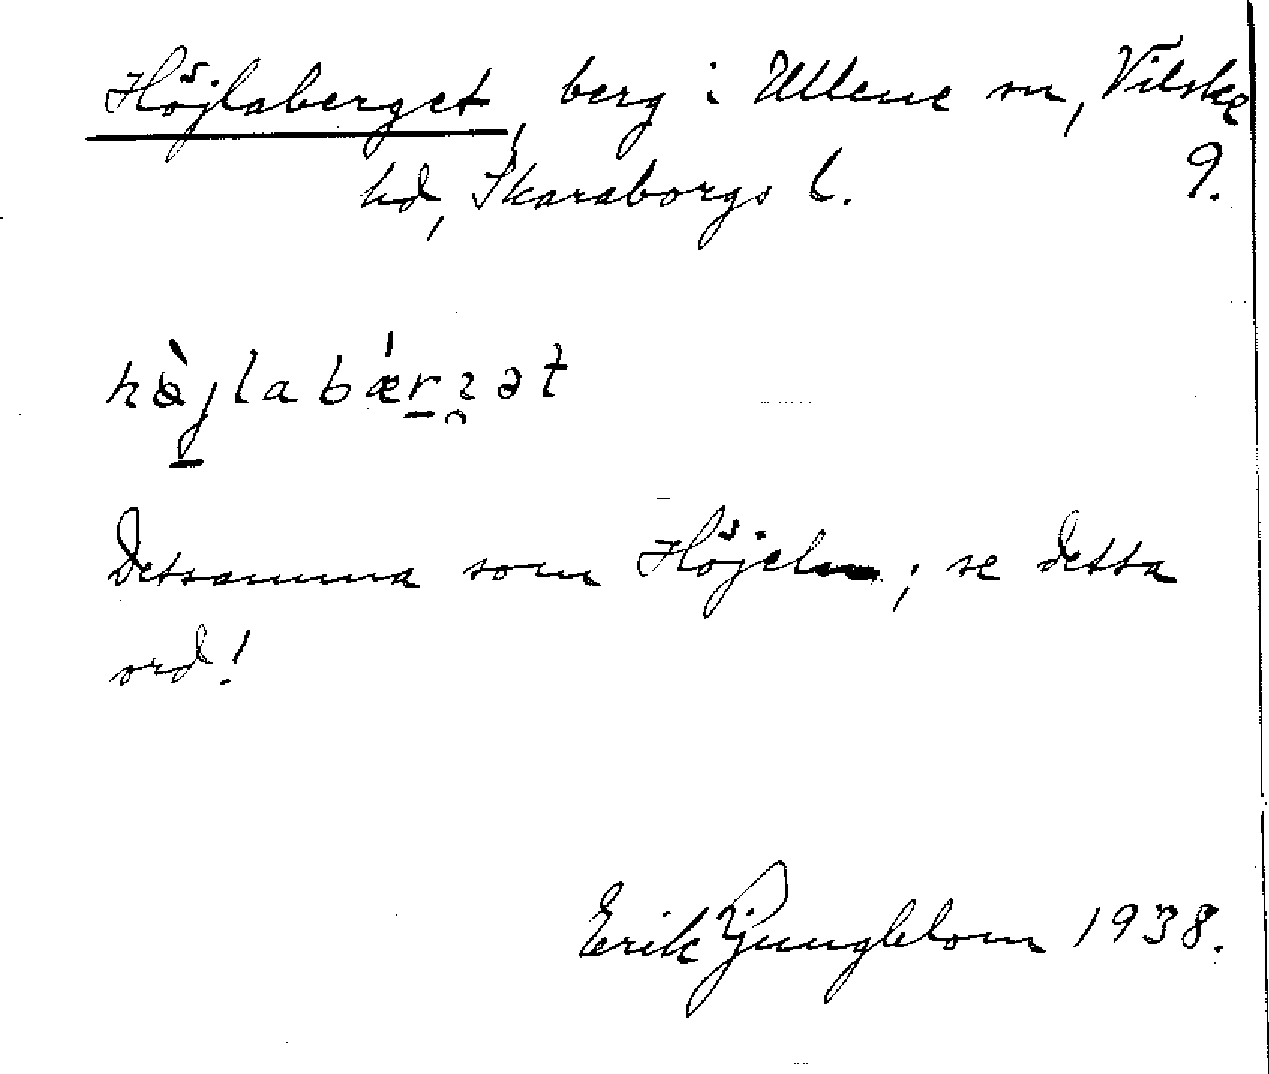 Höjlaberget, berg i Ullene sn, Vilske
hd, Skaraborgs l. 9.
Detsamma som Höjeln; se detta
ord!
Erik Ljungblom 1938.